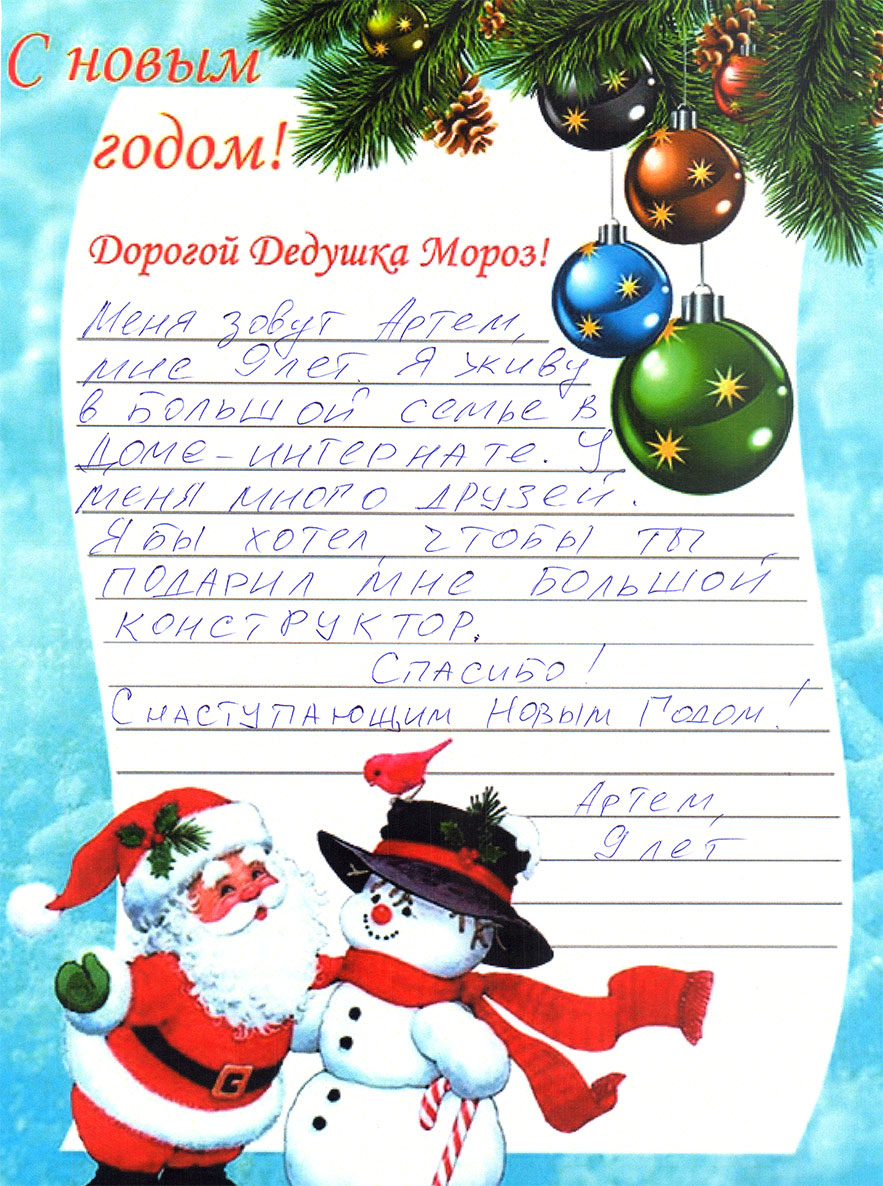 С новым
годом!
Дорогой Дедушка Мороз!
Меня зовут Артем,
мне 9 лет. Я живу
в большой семье в
доме-интернате. У
меня много друзей.
Я бы хотел, чтобы ты
подарил мне большой
конструктор.
Спасибо!
С наступающим Новым Годом!
Артем,
9 лет